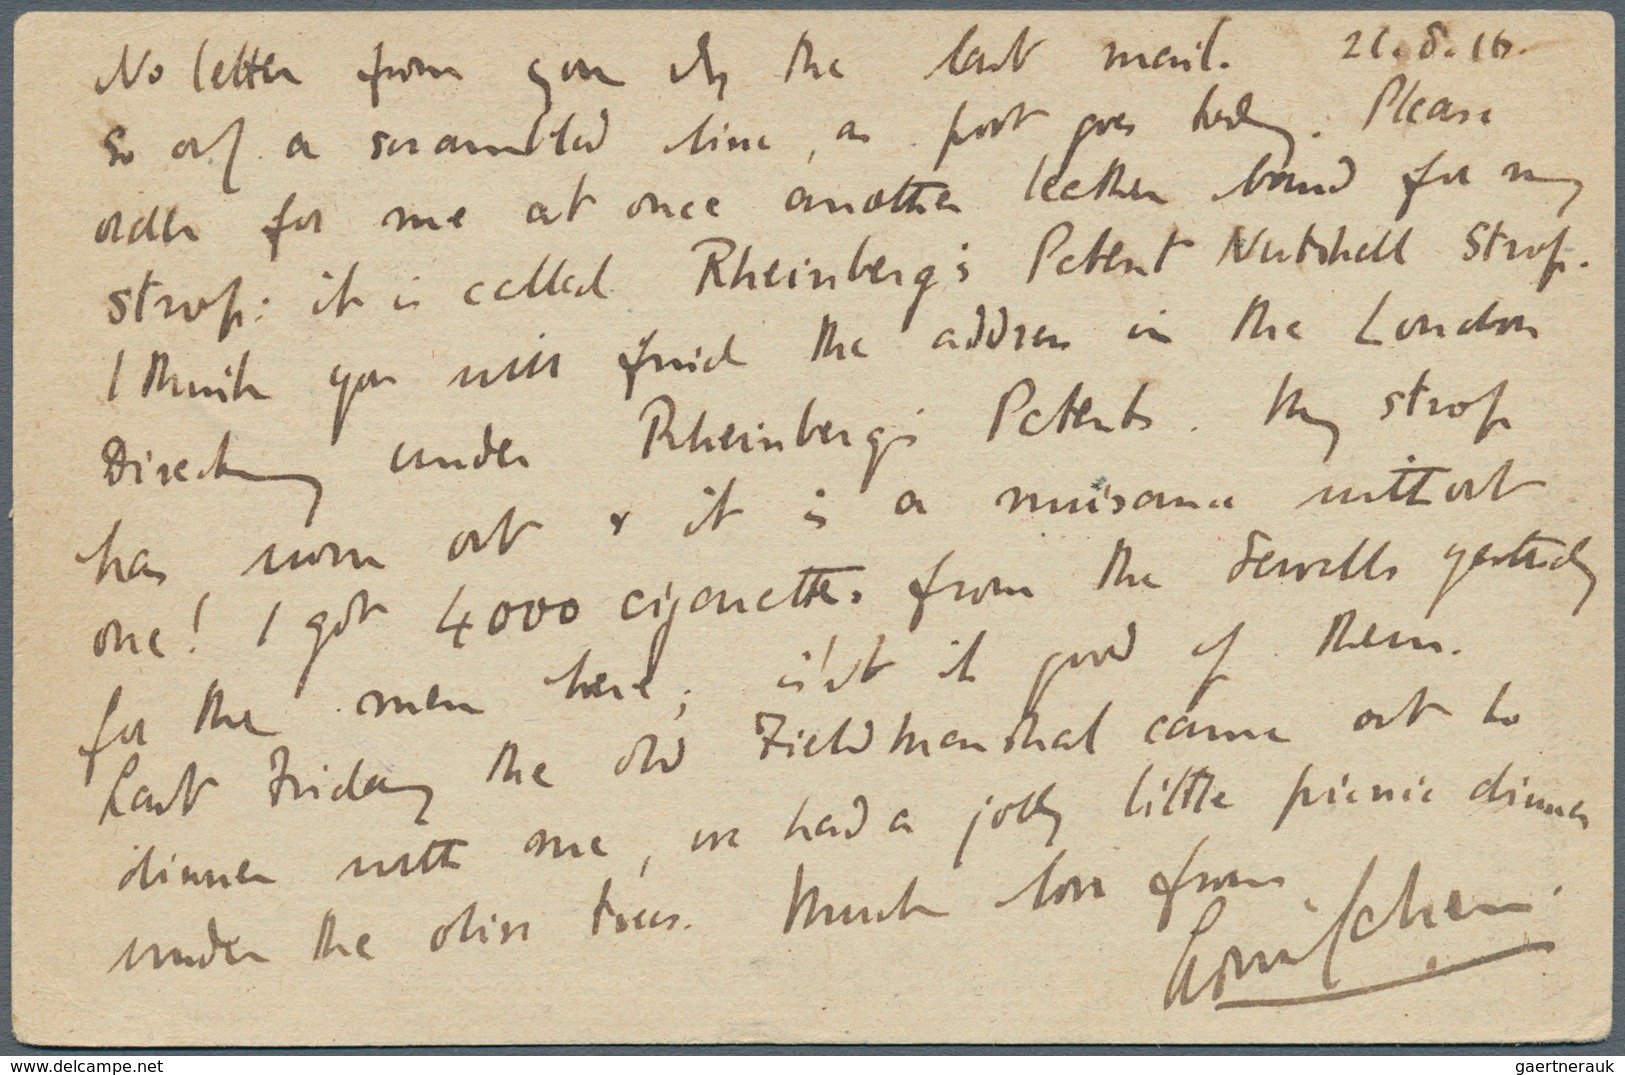 No letter from you by the last mail. 21.8.16.
So only a scrambled line, as post goes today. Please
order for me at once another leather band for my
strop: it is called Rheinberg's Patent Nutshell Strop.
I think you will find the address in the London
Directory under Rheinberg's Patents. My strop
has worn out & it is a nuisance without
one! I got 4000 cigarettes from the Sewells yesterday
for the men here; isn't it good of them.
Last Friday the old Fieldmarshal came out to
dinner with me, we had a jolly little picnic dinner
under the olive trees. Much love from
delcampe.net
gaertnerauk